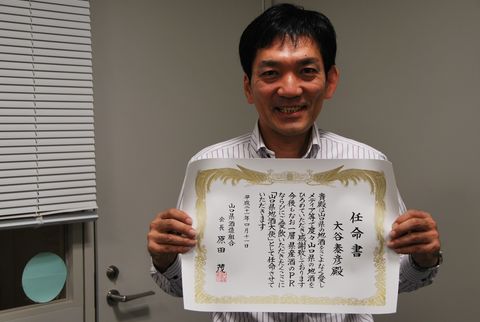 任命書
大谷泰彦殿
貴殿は山口県の地酒をこよなく愛し
メディア等で度々山口県の地酒を
ひろめていただき感謝致しております
今後もなお一層県産酒のPR
ならびにご愛飲いただきたくここに
「山口県地酒大使」として任命させて
いただきます
平成二十一年四月十一日
山口県酒造組合
会長 原田 茂